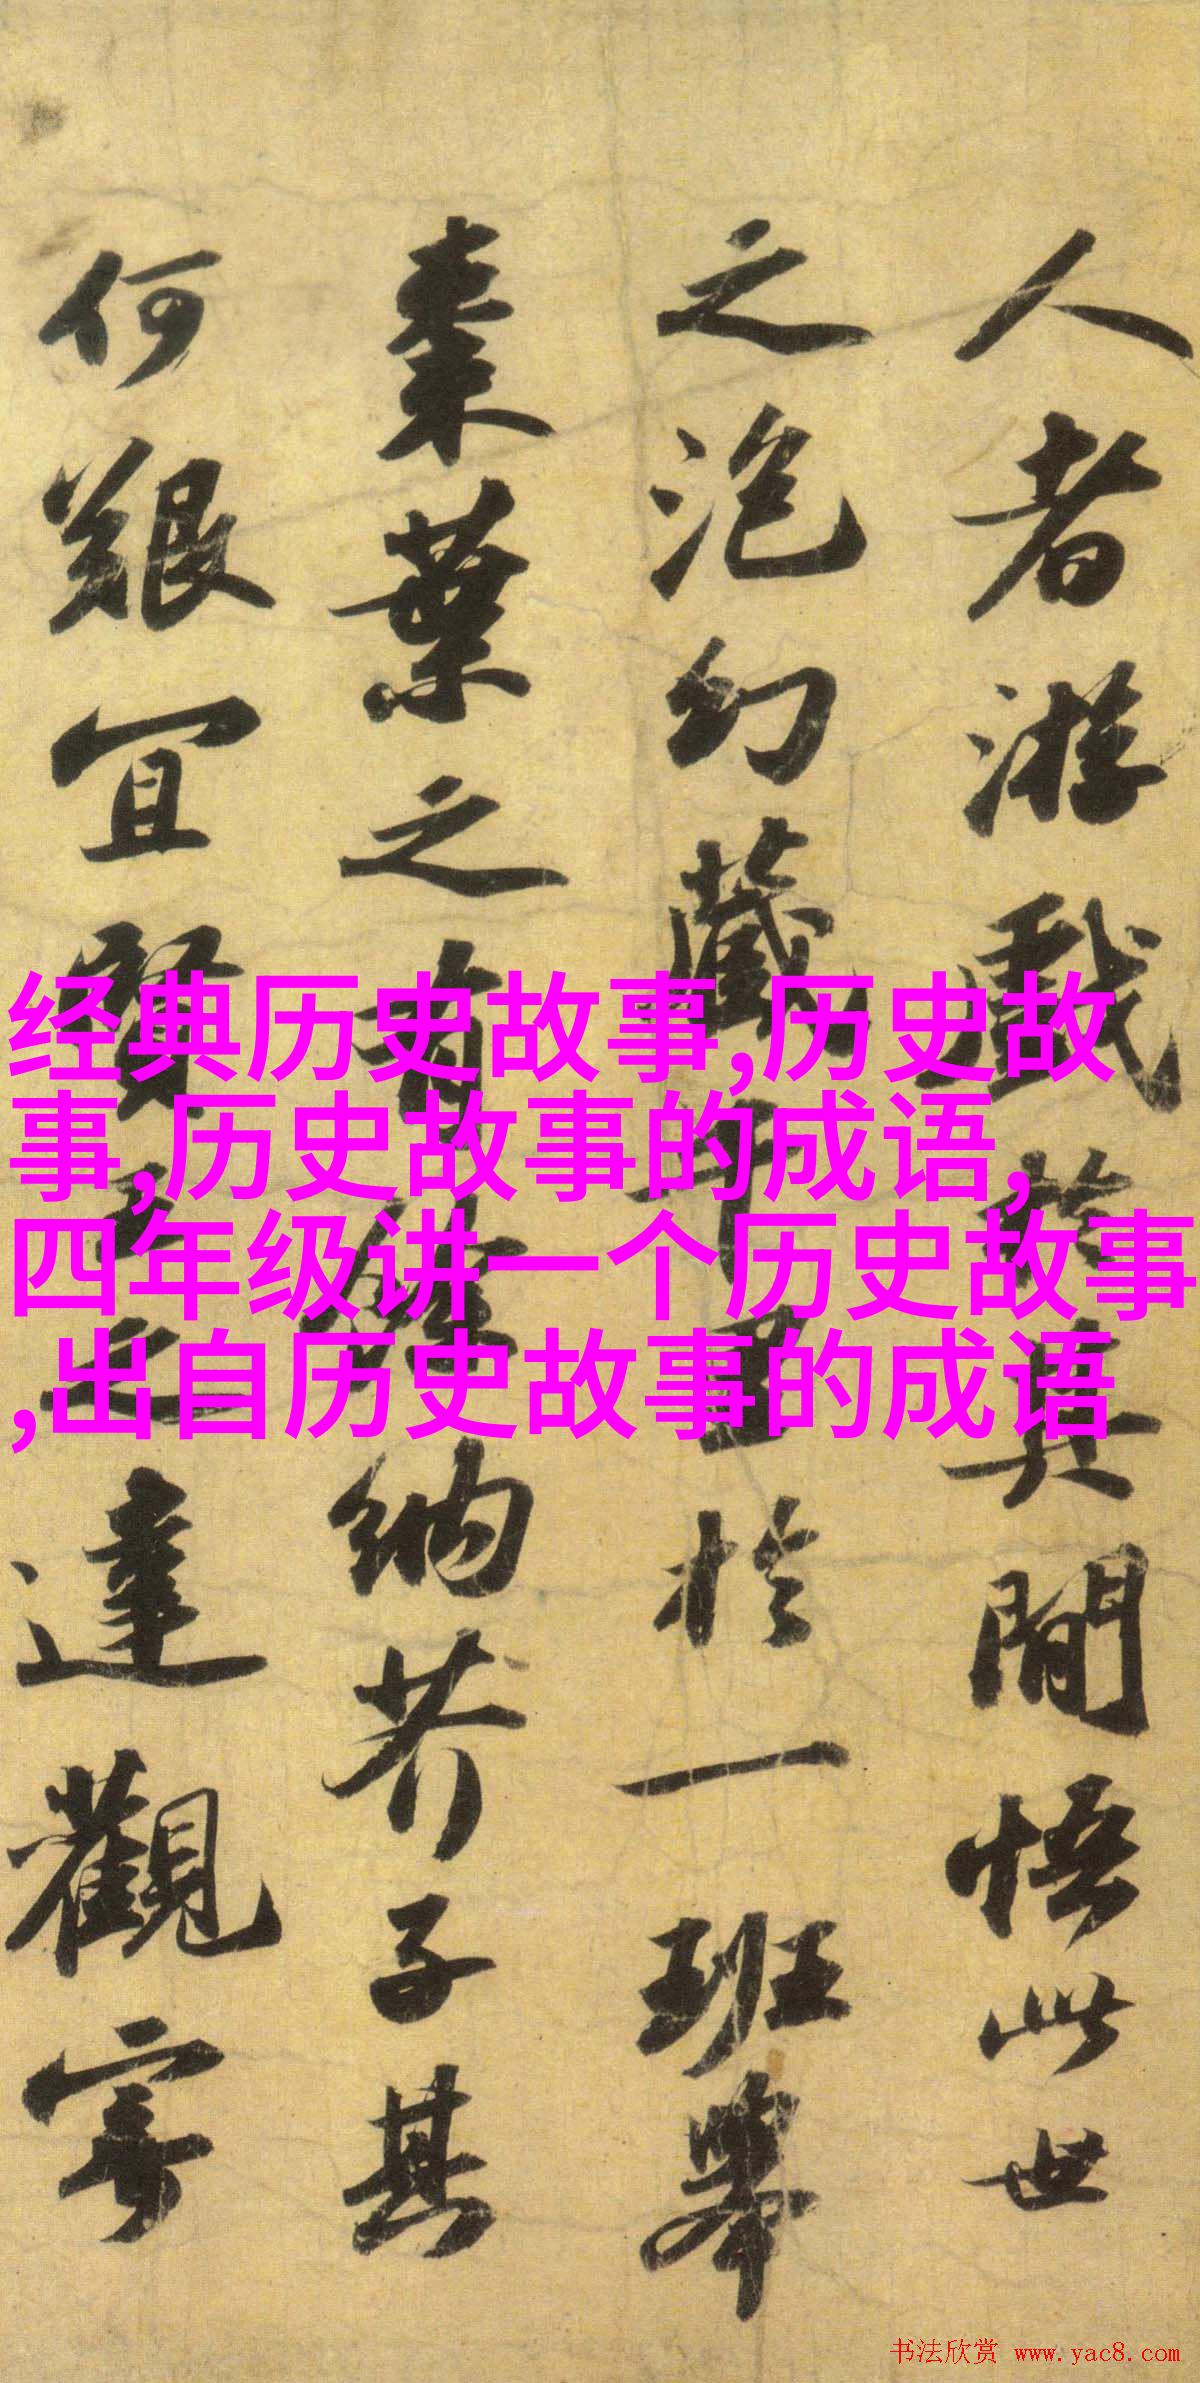 人者游戲於其間悟此世
之泡幻藏千里於一班舉
棗葉之有餘納芥子其
何艱宜賢王之達觀寄
经典历史故事,历史故
事,历史故事的成语,
四年级讲一个历史故事
,出白历史故事的成语
书法欣赏 www.yac8.com